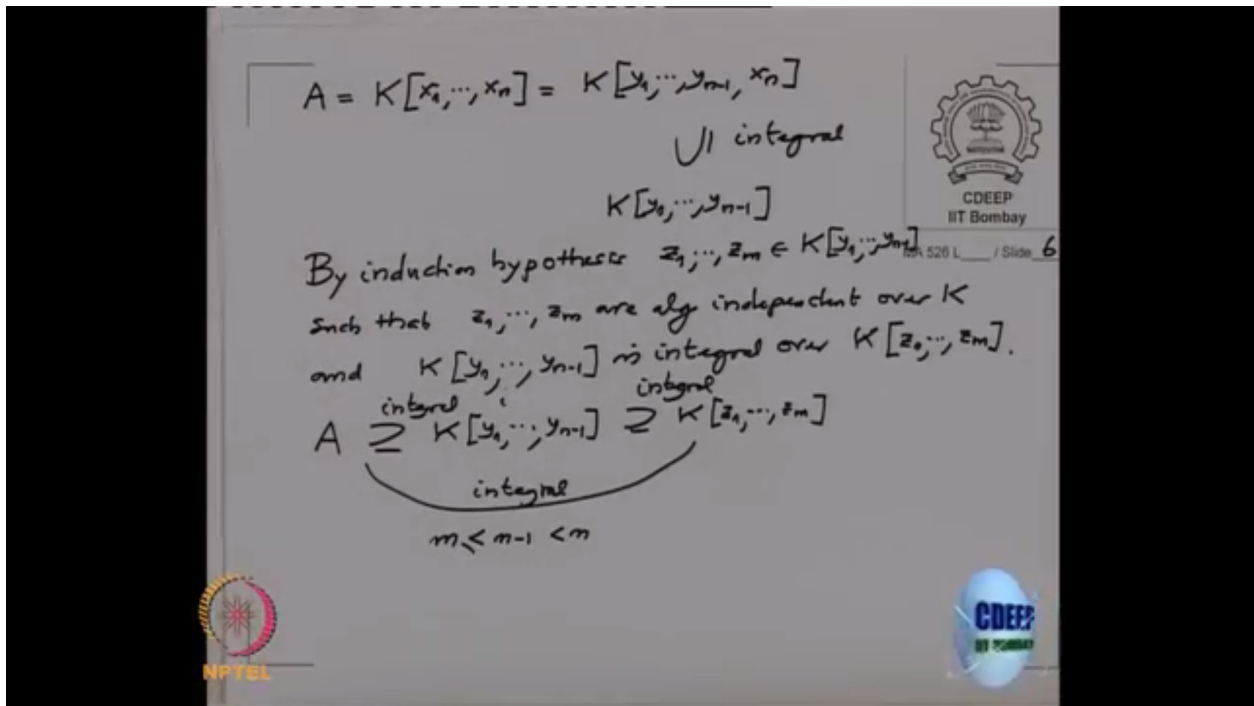 A = K[x₁,⋯,xₙ] = K[y₁,⋯,yₙ₋₁, xₙ]
∪| integral
K[y₁,⋯,yₙ₋₁]
CDEEP
IIT Bombay
MA 526 L___ / Slide 6
By induction hypothesis z₁,⋯,zₘ ∈ K[y₁,⋯,yₙ₋₁]
such that z₁,⋯,zₘ are alg independent over K
and K[y₁,⋯,yₙ₋₁] is integral over K[z₁,⋯,zₘ].
integral integral
A ⊇ K[y₁,⋯,yₙ₋₁] ⊇ K[z₁,⋯,zₘ]
integral
m ≤ n-1 < n
NPTEL
CDEEP
IIT BOMBAY